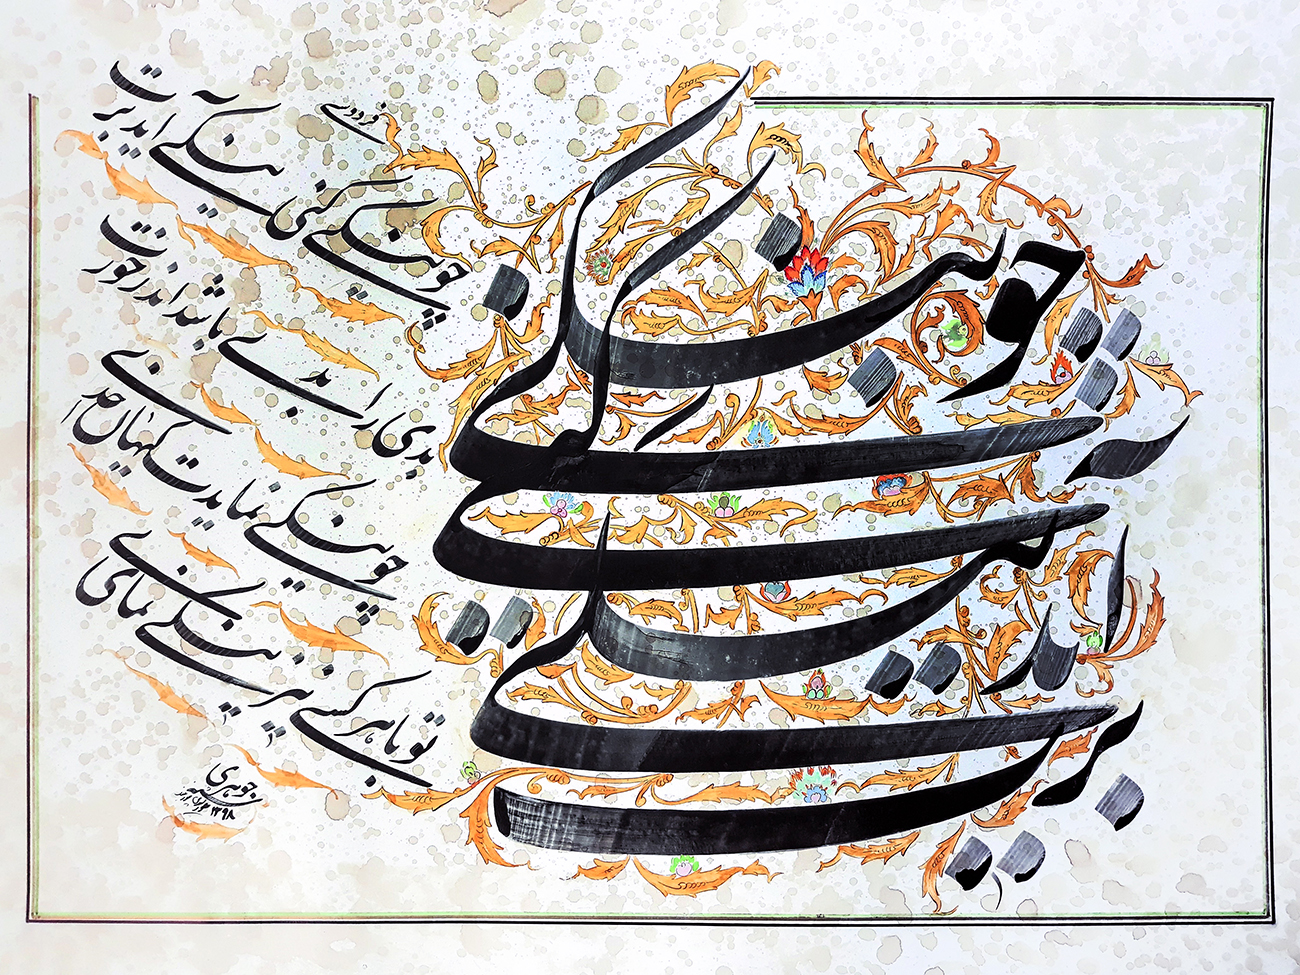 چو نیکی کنی
نیکی
آید
برت
فردوسی
چو نیکی کنی نیکی آید برت
بدی را بدی باشد اندرخورت
چو نیکی نمایدت کیهان خدای
تو با هر کسی نیز نیکی نمای
جوهری
۱۳۹۸